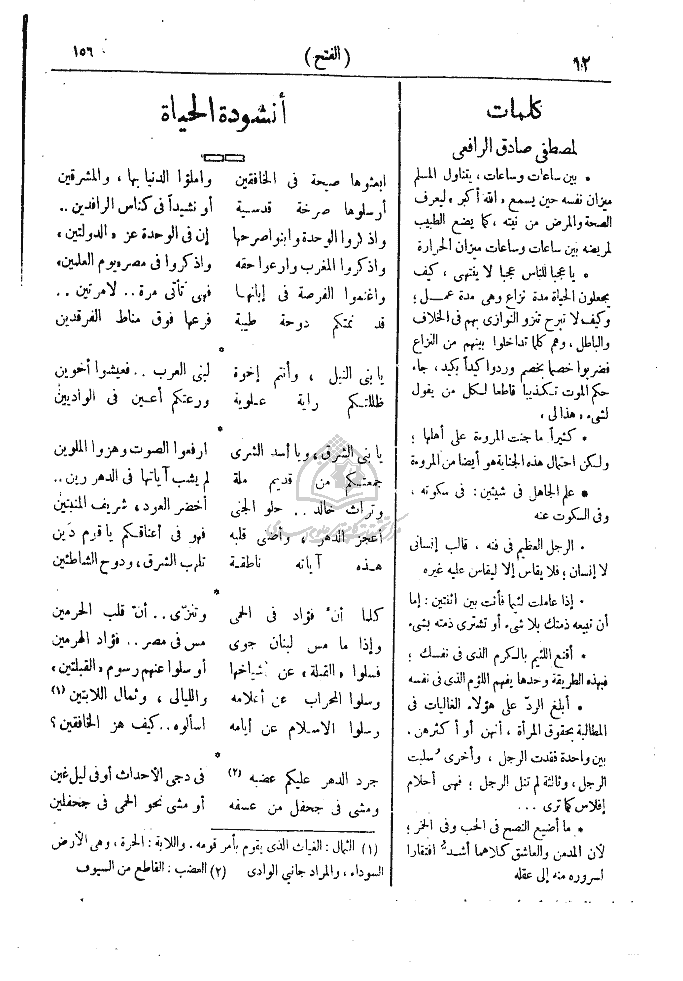 ٩٢
(الفتح)
١٥٦
كلمات
لمصطفى صادق الرافعى
• بين ساعات وساعات، يتناول المسلم
ميزان نفسه حين يسمع «الله أكبر» ليعرف
الصحة والمرض من نيته، كما يضع الطبيب
لمريضه بين ساعات وساعات ميزان الحرارة
• يا عجبا للناس عجبا لا ينتهى، كيف
يجعلون الحياة مدة نزاع وهى مدة عمل؛
وكيف لا تبرح تنزو النوازى بهم فى الخلاف
والباطل، وهم كلما تداخلوا بينهم من النزاع
فضربوا خصما بخصم وردوا كيداً بكيد، جاء
حكم الموت تكذيبا قاطعا لكل من يقول
لشىء، هذا لى،
• كثيراً ما جنت المروءة على أهلها؛
ولكن احتمال هذه الجناية هو أيضا من المروءة
• علم الجاهل فى شيئين: فى سكوته،
وفى السكوت عنه
• الرجل العظيم فى فنه، قالب إنسانى
لا إنسان؛ فلا يقاس إلا ليقاس عليه غيره
• إذا عاملت لئيما فأنت بين اثنتين: إما
أن تبيعه ذمتك بلا شىء أو تشترى ذمته بشىء
• أقنع اللئيم بالكرم الذى فى نفسك؛
فبهذه الطريقة وحدها يفهم اللؤم الذى فى نفسه
• أبلغ الردّ على هؤلاء الغاليات فى
المطالبة بحقوق المرأة، أنهن أو أكثرهن.
بين واحدة فقدت الرجل، وأخرى سلبت
الرجل، وثالثة لم تنل الرجل؛ فهى أحلام
إفلاس كما ترى ...
• ما أضيع النصح فى الحب وفى الخمر؛
لأن المدمن والعاشق كلاهما أشد افتقارا
لسروره منه إلى عقله
أنشودة الحياة
ابعثوها صيحة فى الخافقين واملؤا الدنيا بها، والمشرقين
أرسلوها صرخة قدسية أو نشيداً فى كناس الرافدين..
واذكروا الوحدة وابنوا صرحها إن فى الوحدة عز «الدولتين»
واذكروا المغرب وارعوا حقه واذكروا فى مصر «يوم العلمين»
واغنموا الفرصة فى إبانها فهى تأتى مرة.. لا مرتين..
قد نمتكم دوحة طيبة فرعها فوق مناط الفرقدين
*
يا بنى النيل، وأنتم إخوة لبنى العرب.. فعيشوا أخوين
ظللتكم راية علوية ورعتكم أعين فى الواديين
*
يا بنى الشرق، ويا أسد الشرى ارفعوا الصوت وهزوا الملوين
جمعتكم من قديم ملة لم يشب آياتها فى الدهر رين..
وتراث خالد.. حلو الجنى أخضر العود، شريف المنبتين
أعجز الدهر، وأضنى قلبه فهو فى أعناقكم يا قوم دَين
هذه آياته ناطقة تلهب الشرق، ودوح الشاطئين
*
كلما أنّ فؤاد فى الحمى وتنزّى.. أنّ قلب الحرمين
وإذا ما مس لبنان جوى مس فى مصر.. فؤاد الهرمين
فسلوا «القبلة» عن أشياخها أو سلوا عنهم رسوم «القبلتين»
وسلوا المحراب عن أعلامه والليالى، وثمال اللابتين (١)
وسلوا الاسلام عن أيامه اسألوه.. كيف هز الخافقين؟
*
جرد الدهر عليكم عضبه (٢) فى دجى الاحداث أو فى ليل غين
ومشى فى جحفل من عسفه أو مشى نحو الحمى فى جحفلين
(١) الثمال: الغياث الذى يقوم بأمر قومه. واللابة: الحرة، وهى الأرض
السوداء، والمراد جانبى الوادى (٢) العضب: القاطع من السيوف